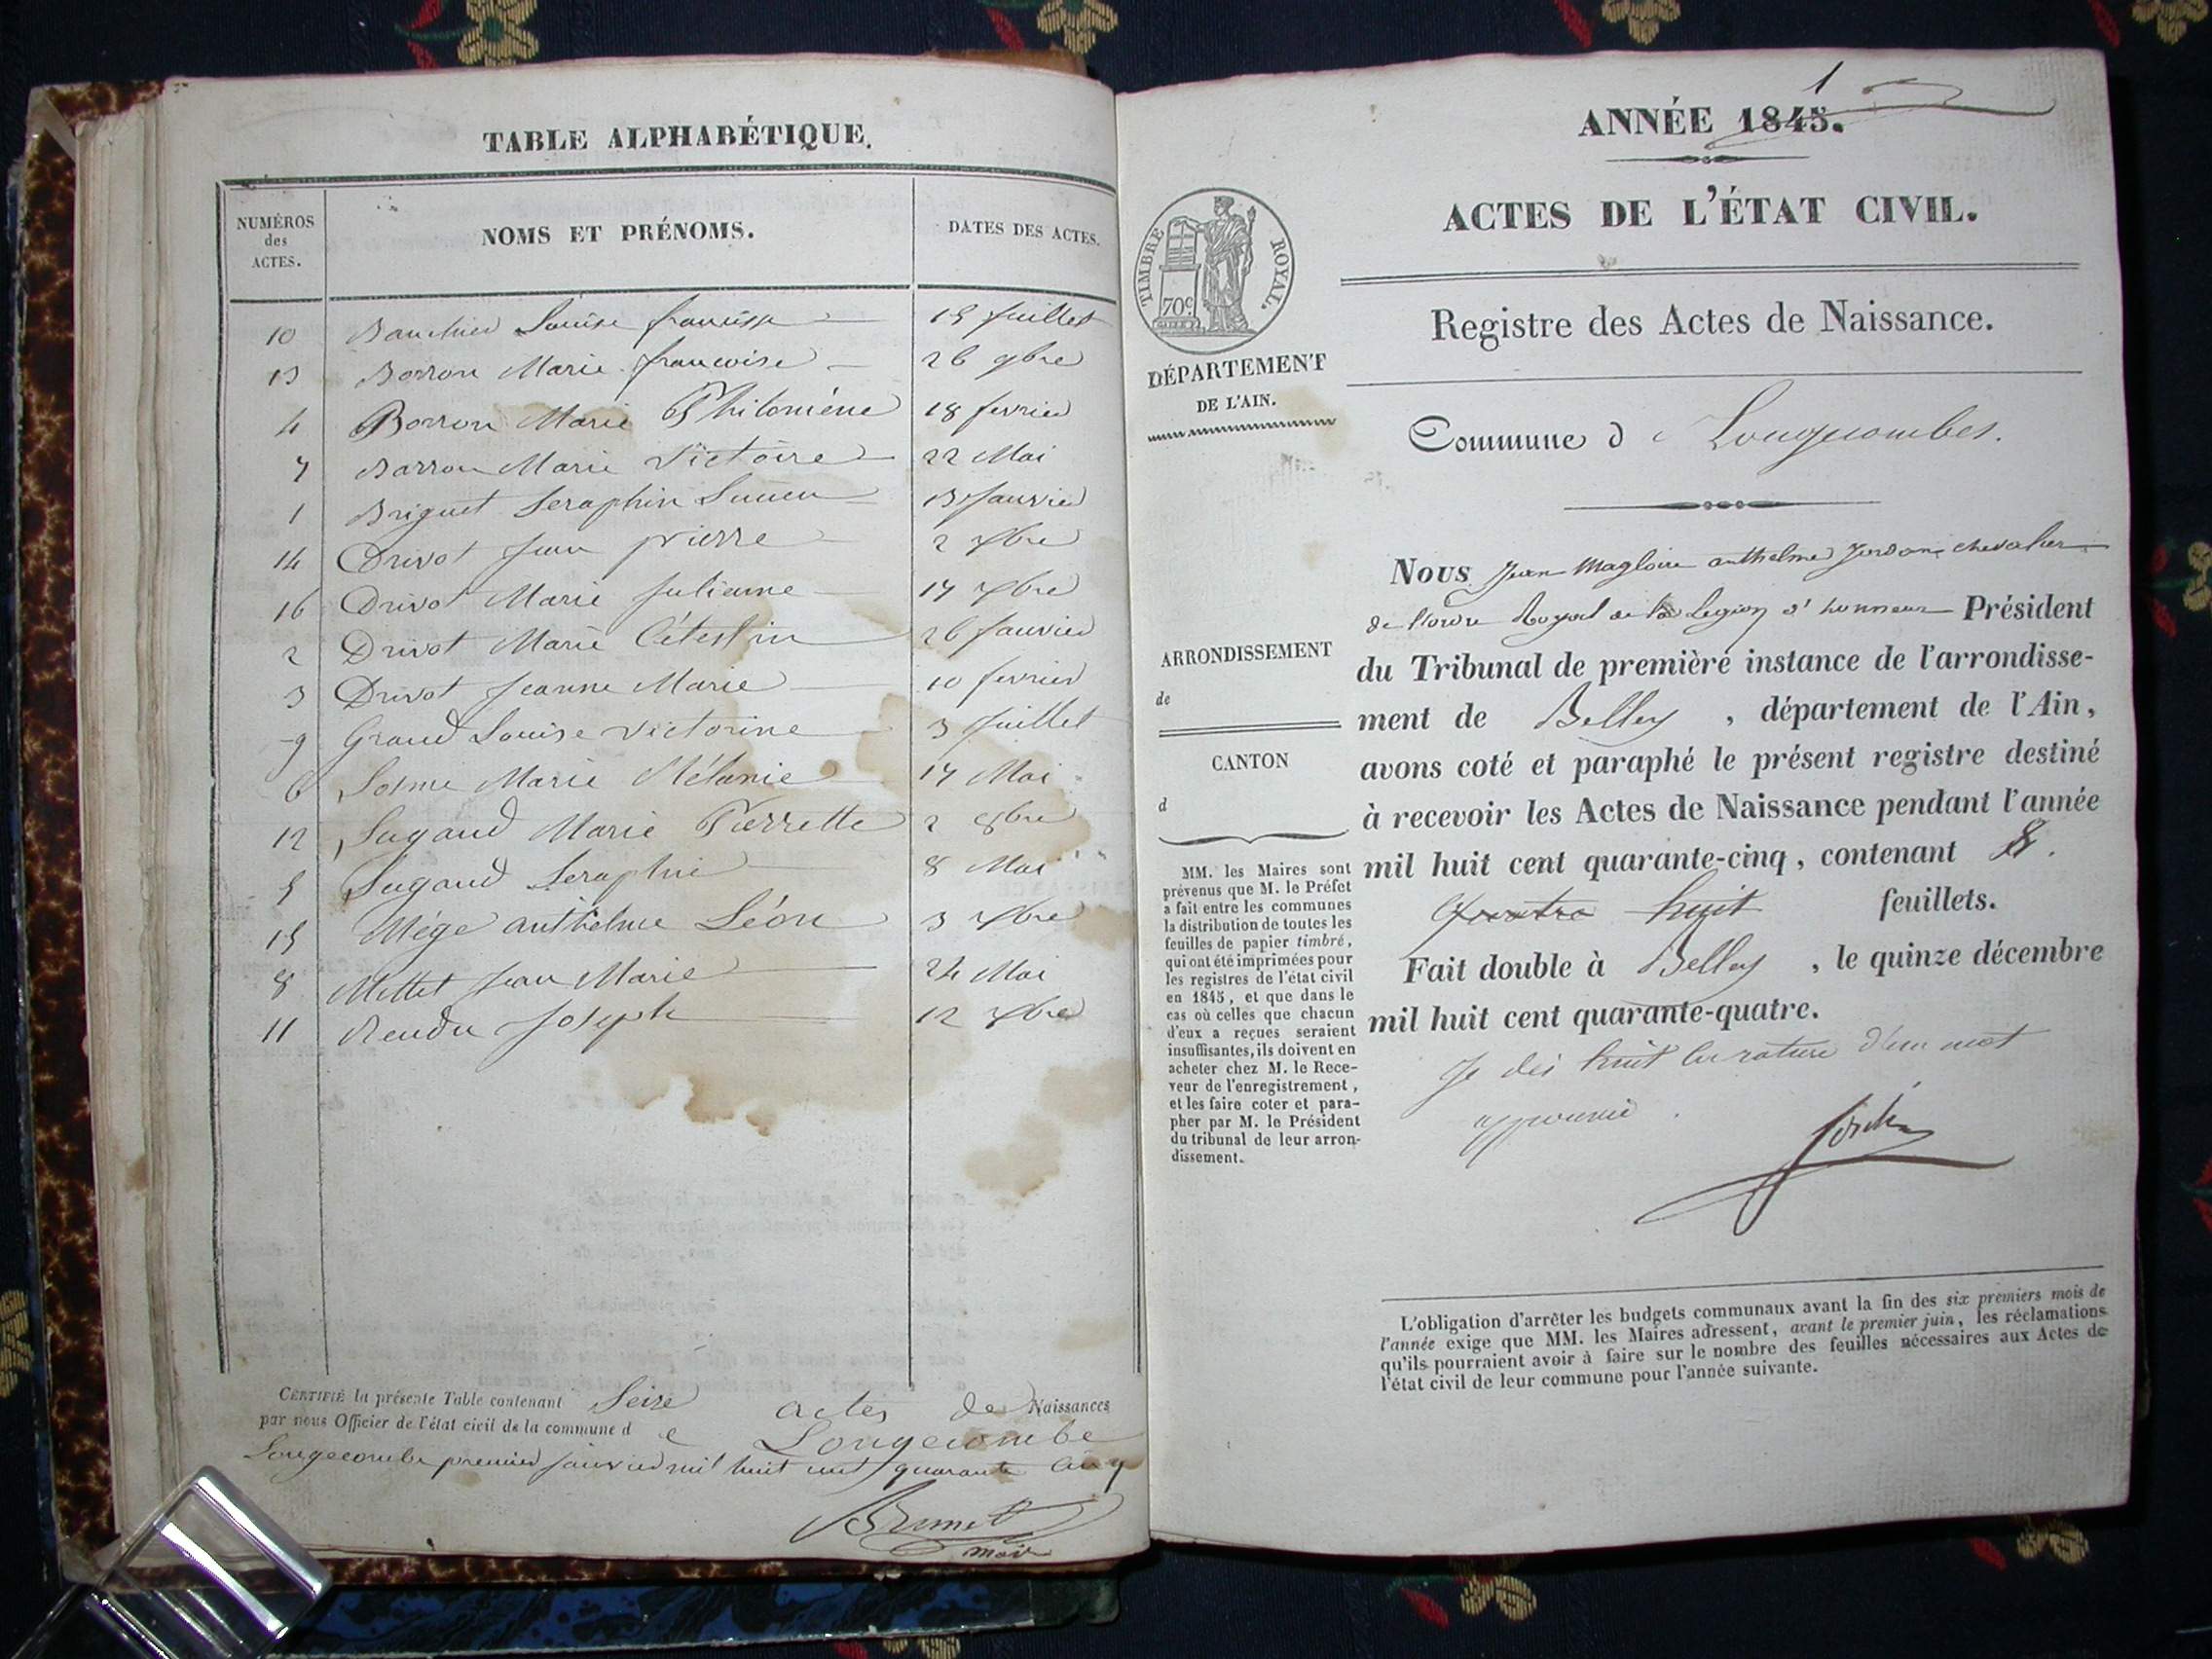 TABLE ALPHABÉTIQUE.
NUMÉROS des ACTES. NOMS ET PRÉNOMS. DATES DES ACTES.
10 Louise 15 Juillet
13 Borron Marie françoise 26 9bre
4 Borron Marie Philomène 18 fevrier
7 Barron Marie Victoire 22 Mai
1 Briguet Seraphin 13 Janvier
14 Drivot Jean pierre 2 Xbre
16 Drivot Marie Julienne 17 Xbre
2 Drivot Marie Célestin 26 Janvier
3 Drivot Jeanne Marie 10 fevrier
9 Grand Louise Victorine 3 Juillet
6 Marie Mélanie 17 Mai
12 Sugaud Marie Pierrette 2 8bre
5 Sugaud Seraphie 8 Mai
15 Mége anthelme Léon 3 Xbre
8 Mettet Jean Marie 24 Mai
11 Rendu Joseph 12
CERTIFIÉ la présente Table contenant Seize actes de Naissances
par nous Officier de l'état civil de la commune d e Longecombe
Longecombe premier Janvier mil huit cent quarante cinq
Brunet
maire
1
ANNÉE 1845.
ACTES DE L'ÉTAT CIVIL.
TIMBRE ROYAL.
70c
Registre des Actes de Naissance.
DÉPARTEMENT
DE L'AIN.
Commune d e Longecombes.
Nous Jean Magloire anthelme Jordan chevalier
de l'ordre Royal de la Legion d'honneur Président
du Tribunal de première instance de l'arrondisse-
ment de Belley, département de l'Ain,
avons coté et paraphé le présent registre destiné
à recevoir les Actes de Naissance pendant l'année
mil huit cent quarante-cinq, contenant 8.
quatre huit feuillets.
Fait double à Belley, le quinze décembre
mil huit cent quarante-quatre.
Je dis huit la rature d'un mot
approuvée.
ARRONDISSEMENT
de
CANTON
d
MM. les Maires sont
prévenus que M. le Préfet
a fait entre les communes
la distribution de toutes les
feuilles de papier timbré,
qui ont été imprimées pour
les registres de l'état civil
en 1845, et que dans le
cas où celles que chacun
d'eux a reçues seraient
insuffisantes, ils doivent en
acheter chez M. le Rece-
veur de l'enregistrement,
et les faire coter et para-
pher par M. le Président
du tribunal de leur arron-
dissement.
L'obligation d'arrêter les budgets communaux avant la fin des six premiers mois de
l'année exige que MM. les Maires adressent, avant le premier juin, les réclamations
qu'ils pourraient avoir à faire sur le nombre des feuilles nécessaires aux Actes de
l'état civil de leur commune pour l'année suivante.